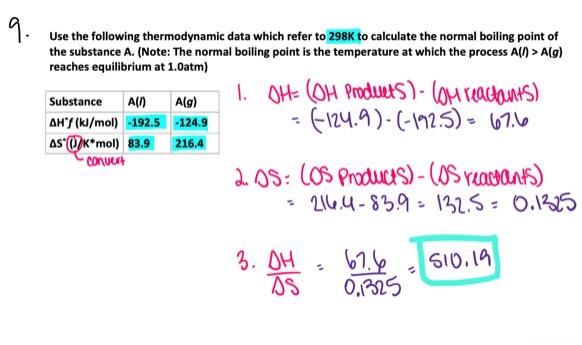 9.
Use the following thermodynamic data which refer to 298K to calculate the normal boiling point of
the substance A. (Note: The normal boiling point is the temperature at which the process A(l) > A(g)
reaches equilibrium at 1.0atm)
Substance A(l) A(g)
ΔH°f (kJ/mol) -192.5 -124.9
ΔS°(J/K*mol) 83.9 216.4
convert
1. ΔH= (ΔH Products) - (ΔH reactants)
= (-124.9) - (-192.5) = 67.6
2. ΔS= (ΔS Products) - (ΔS reactants)
= 216.4 - 83.9 = 132.5 = 0.1325
3. ΔH/ΔS = 67.6/0.1325 = 510.19